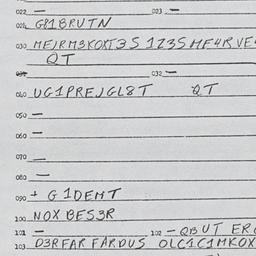 022 — 023 —
024 GR1BRUTN
030 MFJRM3KOXT3S 1Z3SMF4RVE
QT
031 032 —
040 UG1PREJGL8T QT
050 —
060 —
070 —
080 —
090 + G1DEMT
100 NOXBES3R
101 — 102 — QBUT ER
103 D3RFAR FARDUS OLC1C1MKOX